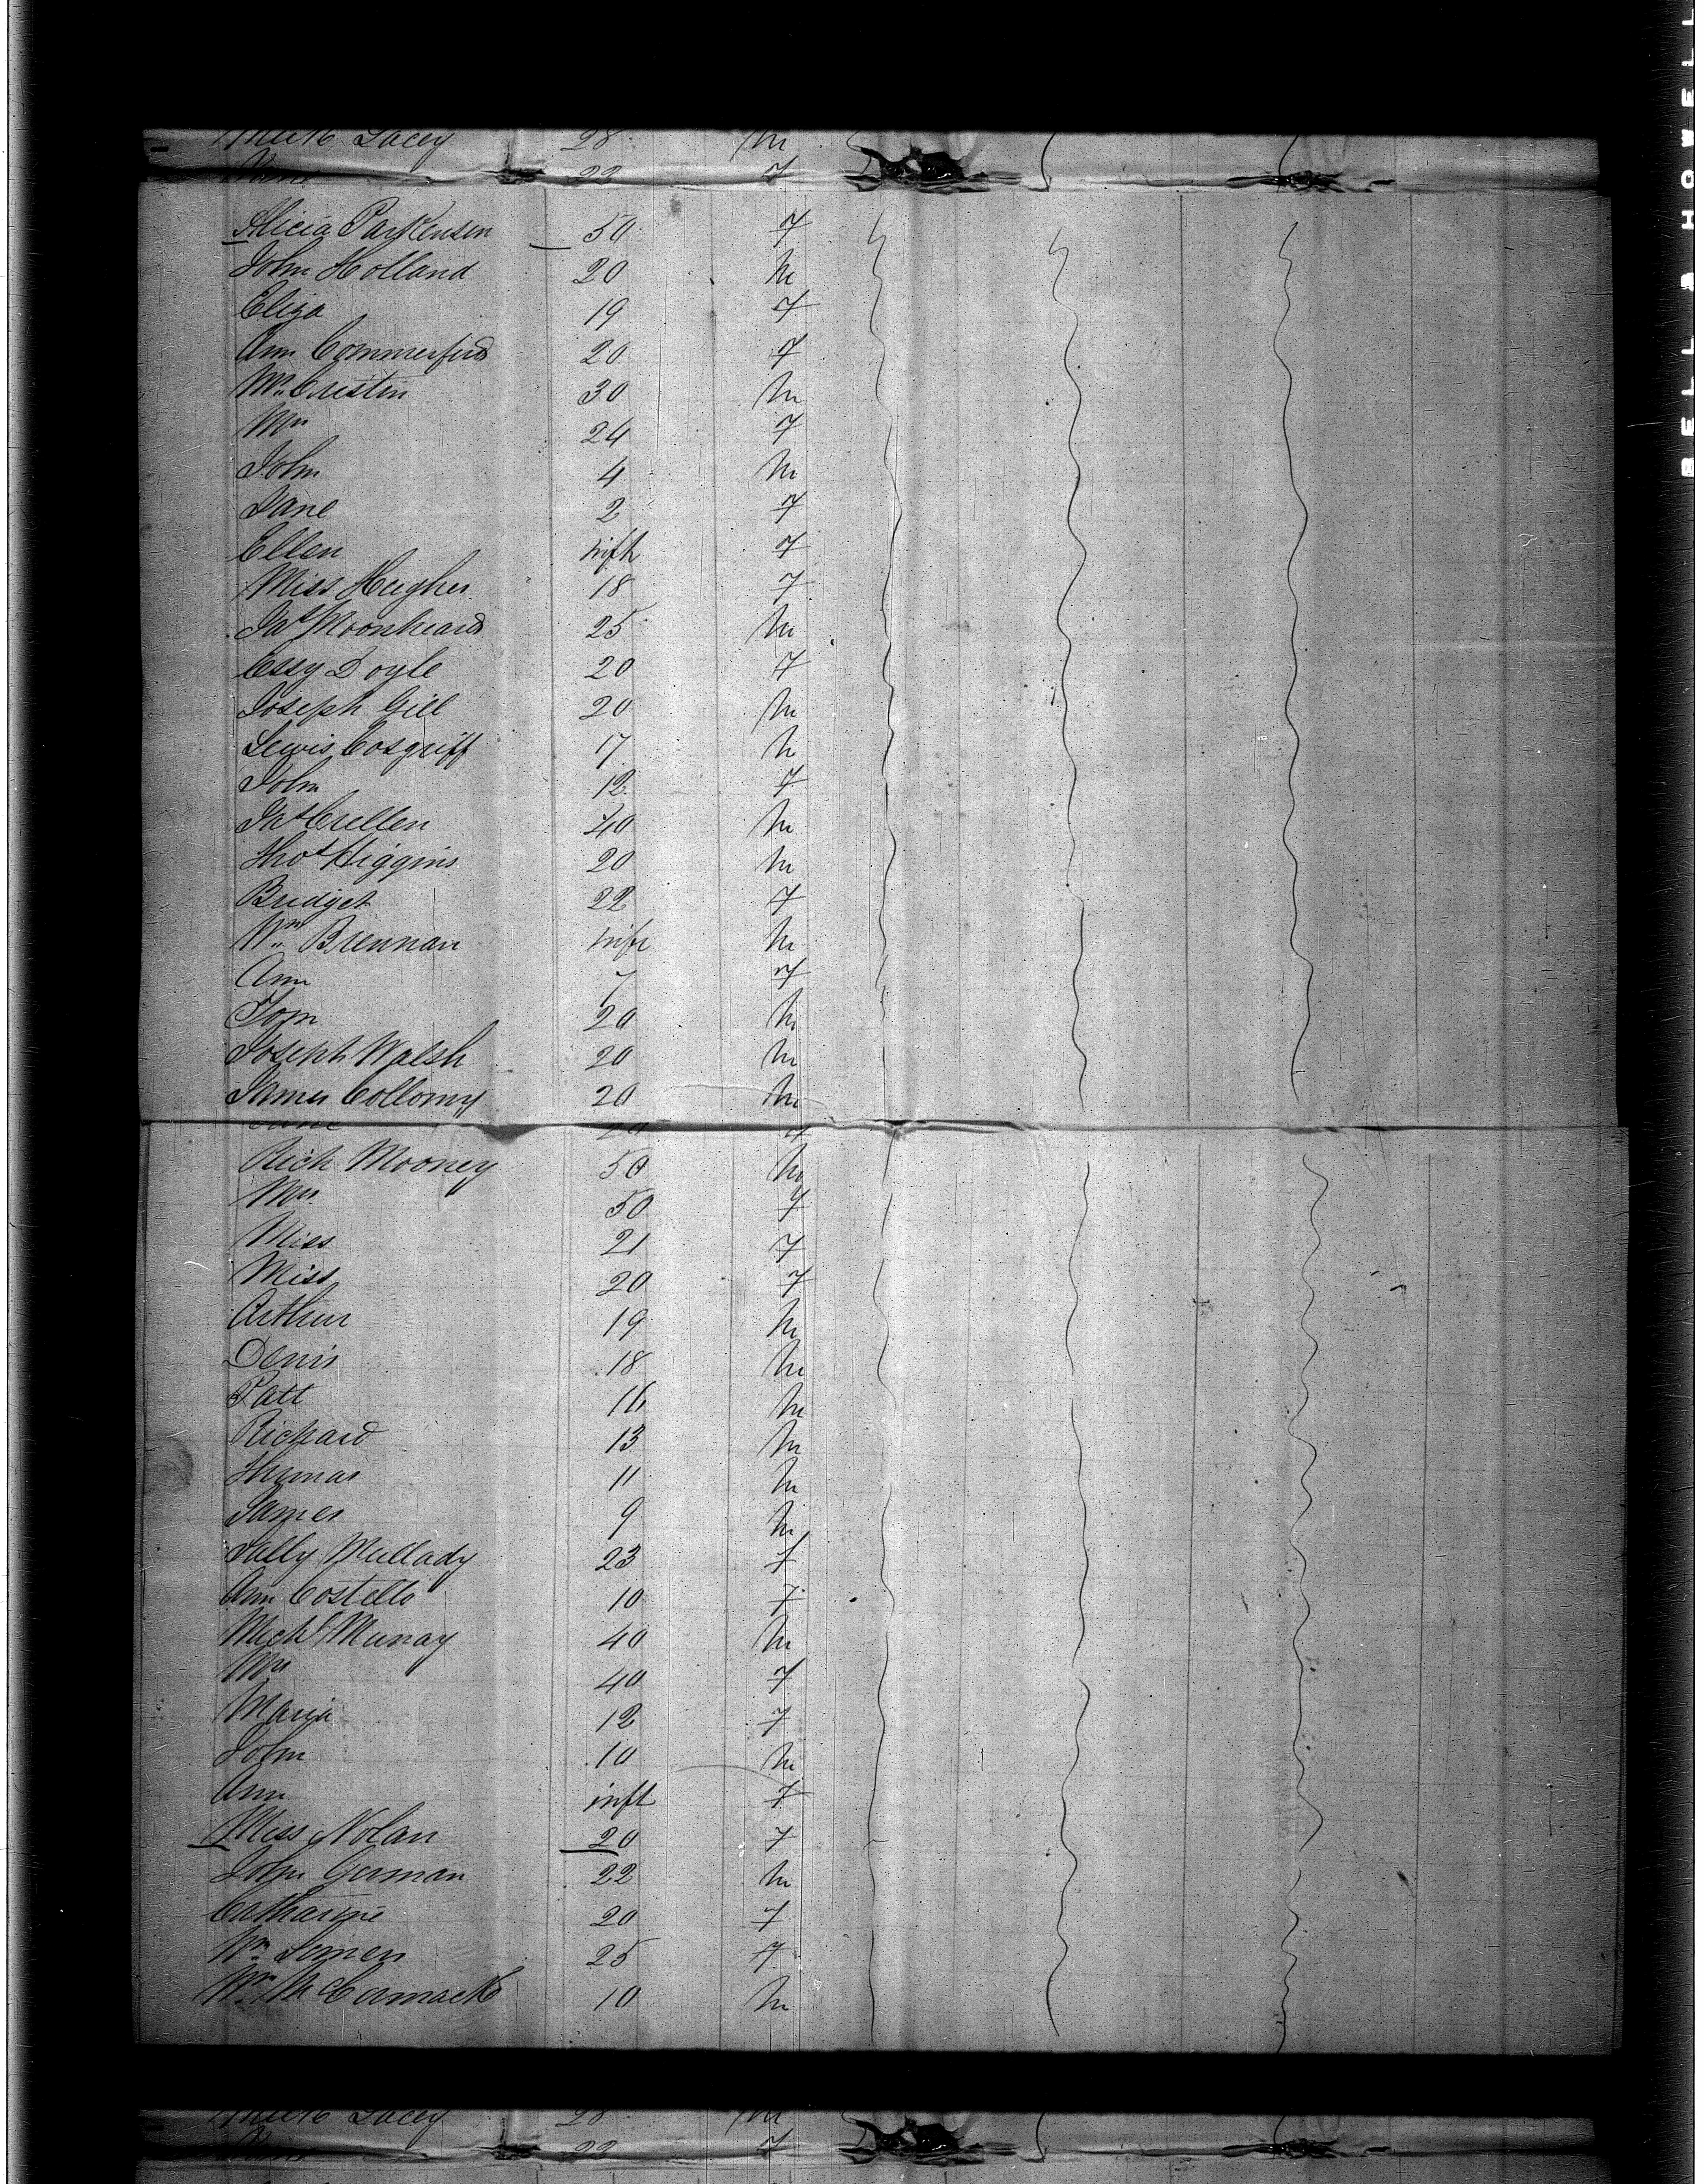 Lacey 28 m
22 7
Alicia Parkenson 50 7
John Holland 20 m
Eliza 19 7
Ann Commerford 20 7
Wm Cristin 30 m
Mrs 24 7
John 4 m
Jane 2 7
Ellen inft 7
Miss Hughes 18 7
Jas Moonheard 25 m
Essy Doyle 20 7
Joseph Gill 20 m
Lewis Cosgriff 17 m
John 12 7
Jas Cullen 40 m
Thos Higgins 20 m
Bridget 22 7
Wm Brennan inft m
Ann 7 7
Tom 20 m
Joseph Walsh 20 m
James Collomy 20 m
Rich Mooney 50 m
Mrs 50 7
Miss 21 7
Miss 20 7
Arthur 19 m
Denis 18 m
Patt 16 m
Richard 13 m
Thomas 11 m
James 9 m
Sally Mullady 23 f
Ann Costello 10 7
Michl Murray 40 m
Mrs 40 7
Maria 12 7
John 10 m
Ann inft 7
Miss Nolan 20 7
John Gorman 22 m
Catharine 20 7
Wm 25 7
Wm McCormack 10 m
Lacey 28 m
22 7
BELL & HOWELL